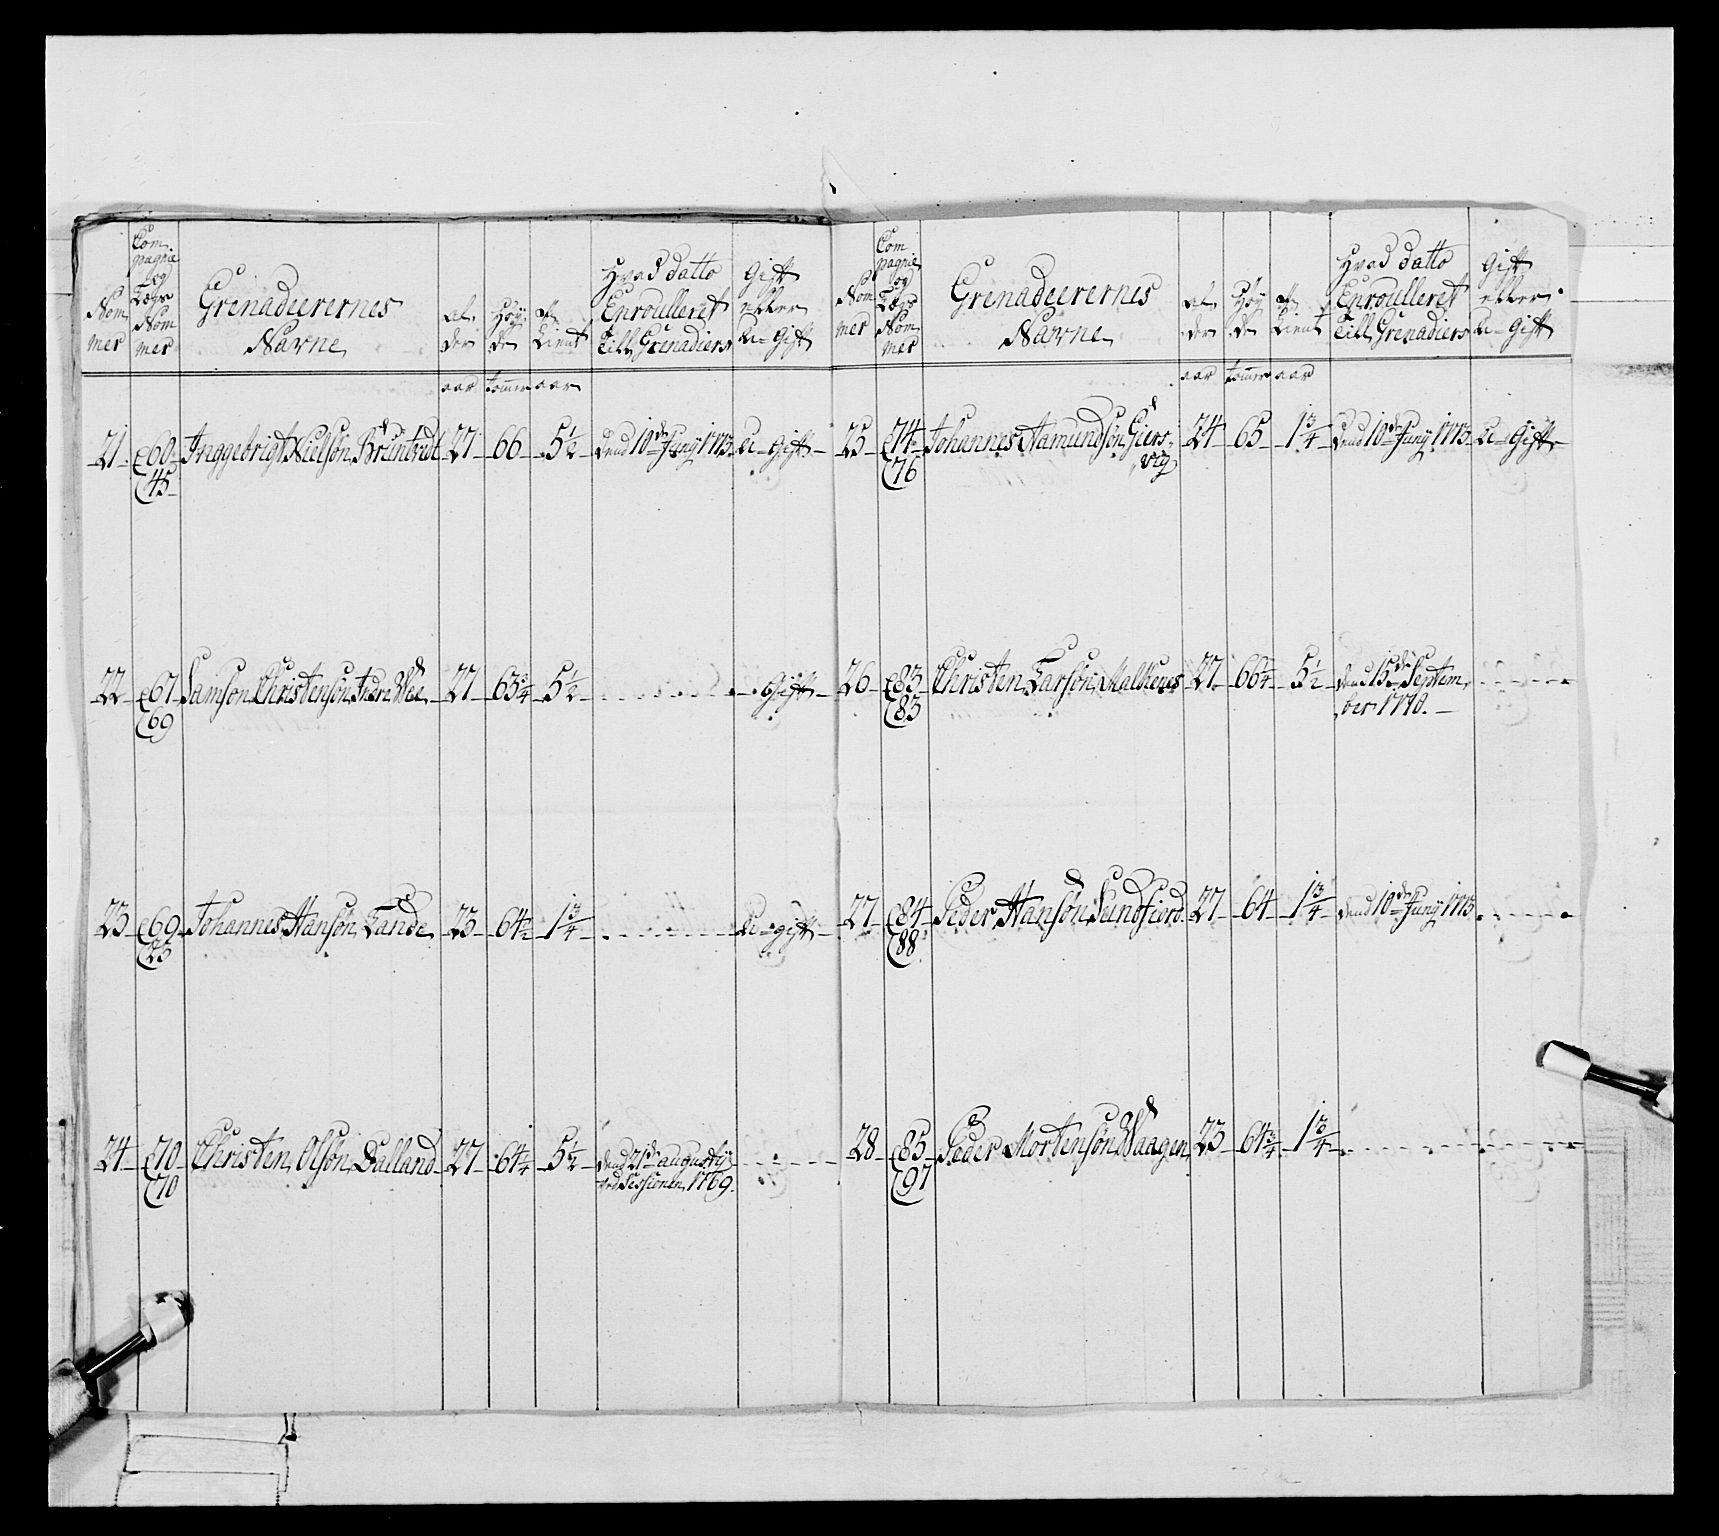 Nom
mer
Com
pagnie
og
Lægs
Nom
mer
Grenadeerernes
Navne
al
der
Høy
de
tient
Hvad datto
Enroulleret
till Grenadiers
Gift
eller
U-Gift
aar tommer aar
21 60 Inggebrigt Nielsøn 27 66 5½ dend 10de Juny 1773 U-Gift
45
22 67 Samson Christensøn Indre Vee 27 63¾ 5½ Gift
69
23 69 Johannes Hansøn Lande 23 64½ 1¾ U-gift
23
24 70 Christen Olsøn Dalland 27 64¼ 5½ dend 21de augusty
70 ved Sessionen 1769.
Nom
mer
Com
pagnie
og
Lægs
Nom
mer
Grenadeerernes
Navne
al
der
Høy
de
tient
Hvad datto
Enroulleret
till Grenadiers
Gift
eller
U-Gift
aar tommer aar
25 74 Johannes Aamundsøn Giers 24 65 1¾ dend 10de Juny 1773 U-Gift
76 vig
26 83 Christen Larsøn 27 66¼ 5½ dend 15de Septem
83 ber 1770.
27 84 Peder Hansøn Sundfiord 27 64 1¾ dend 10de Juny 1773
88
28 85 Peder Mortensøn Waagen 23 64¾ 1¾
97